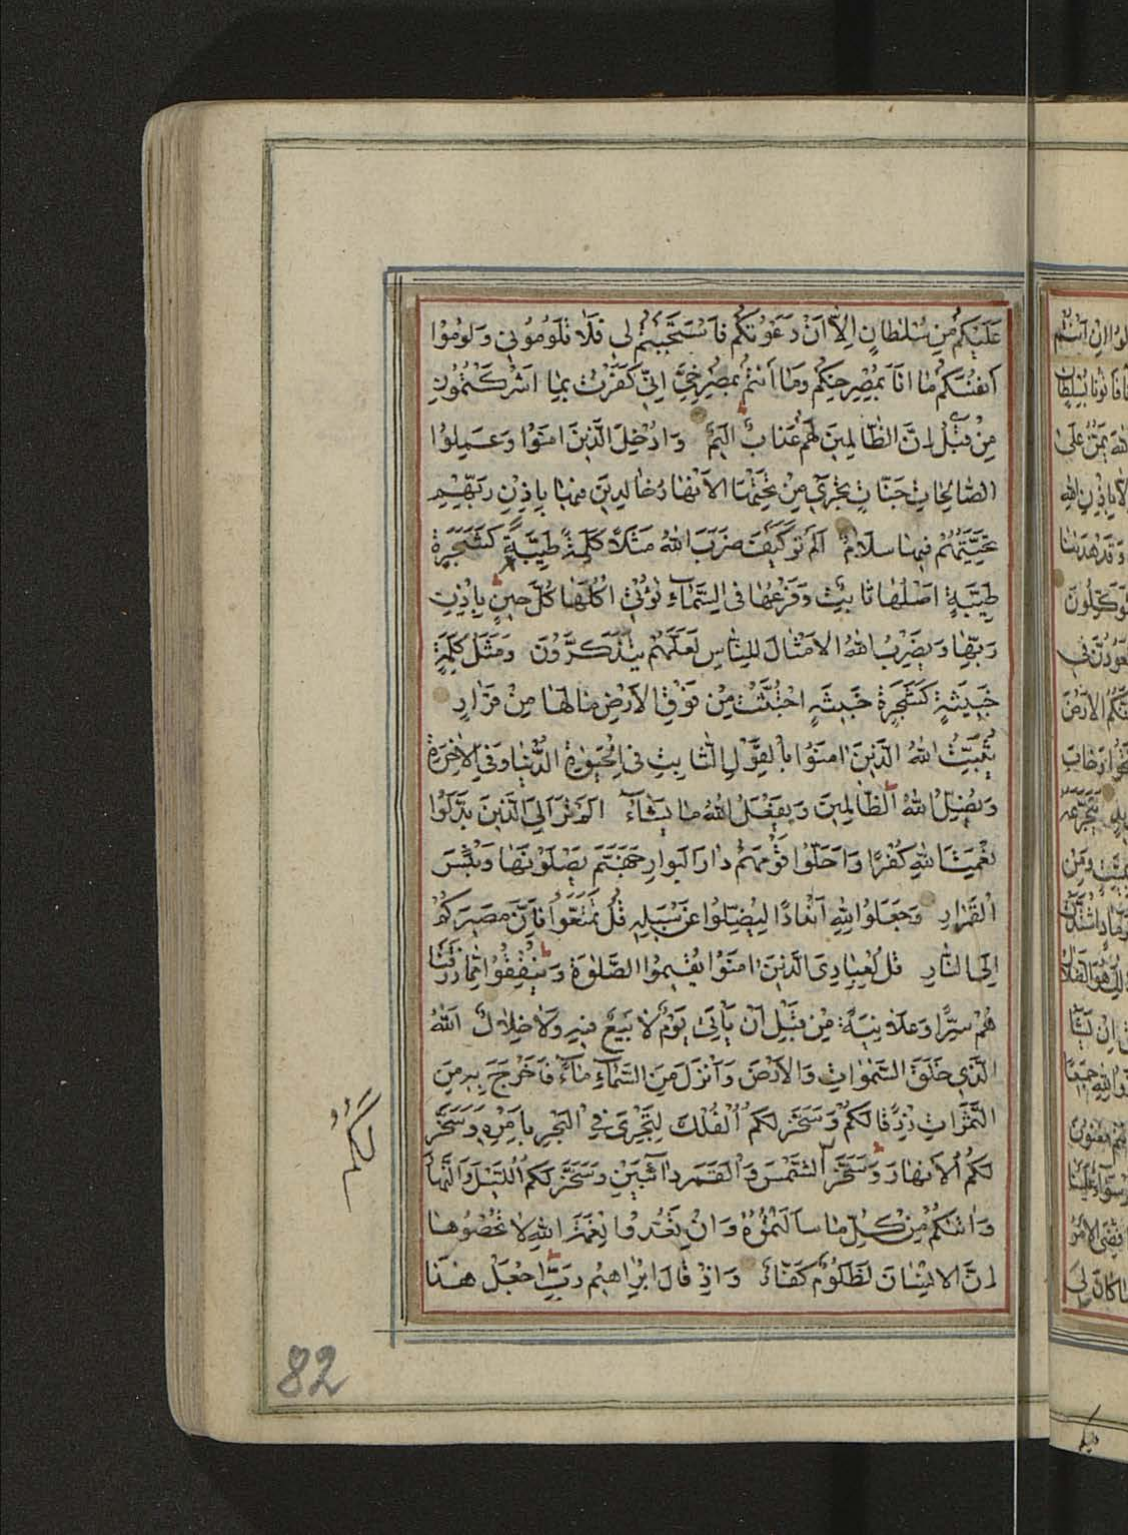 عَلَيْكُمْ مِنْ سُلْطَانٍ اِلَّا اَنْ دَعَوْتُكُمْ فَاسْتَجَبْتُمْ لِي فَلَا تَلُومُونِي وَلُومُوا
اَنْفُسَكُمْ مَا اَنَا بِمُصْرِخِكُمْ وَمَا اَنْتُمْ بِمُصْرِخِيَّ اِنِّي كَفَرْتُ بِمَا اَشْرَكْتُمُونِ
مِنْ قَبْلُ اِنَّ الظَّالِمِينَ لَهُمْ عَذَابٌ اَلِيمٌ وَاُدْخِلَ الَّذِينَ اٰمَنُوا وَعَمِلُوا
الصَّالِحَاتِ جَنَّاتٍ تَجْرِي مِنْ تَحْتِهَا الْاَنْهَارُ خَالِدِينَ فِيهَا بِاِذْنِ رَبِّهِمْ
تَحِيَّتُهُمْ فِيهَا سَلَامٌ اَلَمْ تَرَ كَيْفَ ضَرَبَ اللهُ مَثَلًا كَلِمَةً طَيِّبَةً كَشَجَرَةٍ
طَيِّبَةٍ اَصْلُهَا ثَابِتٌ وَفَرْعُهَا فِي السَّمَاءِ تُؤْتِي اُكُلَهَا كُلَّ حِينٍ بِاِذْنِ
رَبِّهَا وَيَضْرِبُ اللهُ الْاَمْثَالَ لِلنَّاسِ لَعَلَّهُمْ يَتَذَكَّرُونَ وَمَثَلُ كَلِمَةٍ
خَبِيثَةٍ كَشَجَرَةٍ خَبِيثَةٍ اجْتُثَّتْ مِنْ فَوْقِ الْاَرْضِ مَا لَهَا مِنْ قَرَارٍ
يُثَبِّتُ اللهُ الَّذِينَ اٰمَنُوا بِالْقَوْلِ الثَّابِتِ فِي الْحَيٰوةِ الدُّنْيَا وَفِي الْاٰخِرَةِ
وَيُضِلُّ اللهُ الظَّالِمِينَ وَيَفْعَلُ اللهُ مَا يَشَاءُ اَلَمْ تَرَ اِلَى الَّذِينَ بَدَّلُوا
نِعْمَتَ اللهِ كُفْرًا وَاَحَلُّوا قَوْمَهُمْ دَارَ الْبَوَارِ جَهَنَّمَ يَصْلَوْنَهَا وَبِئْسَ
الْقَرَارُ وَجَعَلُوا لِلّٰهِ اَنْدَادًا لِيُضِلُّوا عَنْ سَبِيلِهِ قُلْ تَمَتَّعُوا فَاِنَّ مَصِيرَكُمْ
اِلَى النَّارِ قُلْ لِعِبَادِيَ الَّذِينَ اٰمَنُوا يُقِيمُوا الصَّلٰوةَ وَيُنْفِقُوا مِمَّا رَزَقْنَا
هُمْ سِرًّا وَعَلَانِيَةً مِنْ قَبْلِ اَنْ يَاْتِيَ يَوْمٌ لَا بَيْعٌ فِيهِ وَلَا خِلَالٌ اَللهُ
الَّذِي خَلَقَ السَّمٰوَاتِ وَالْاَرْضَ وَاَنْزَلَ مِنَ السَّمَاءِ مَاءً فَاَخْرَجَ بِهِ مِنَ
الثَّمَرَاتِ رِزْقًا لَكُمْ وَسَخَّرَ لَكُمُ الْفُلْكَ لِتَجْرِيَ فِي الْبَحْرِ بِاَمْرِهِ وَسَخَّرَ
لَكُمُ الْاَنْهَارَ وَسَخَّرَ الشَّمْسَ وَالْقَمَرَ دَائِبَيْنِ وَسَخَّرَ لَكُمُ اللَّيْلَ وَالنَّهَارَ
وَاٰتٰىكُمْ مِنْ كُلِّ مَا سَاَلْتُمُوهُ وَاِنْ تَعُدُّوا نِعْمَتَ اللهِ لَا تُحْصُوهَا
اِنَّ الْاِنْسَانَ لَظَلُومٌ كَفَّارٌ وَاِذْ قَالَ اِبْرٰاهِيمُ رَبِّ اجْعَلْ هٰذَا
82